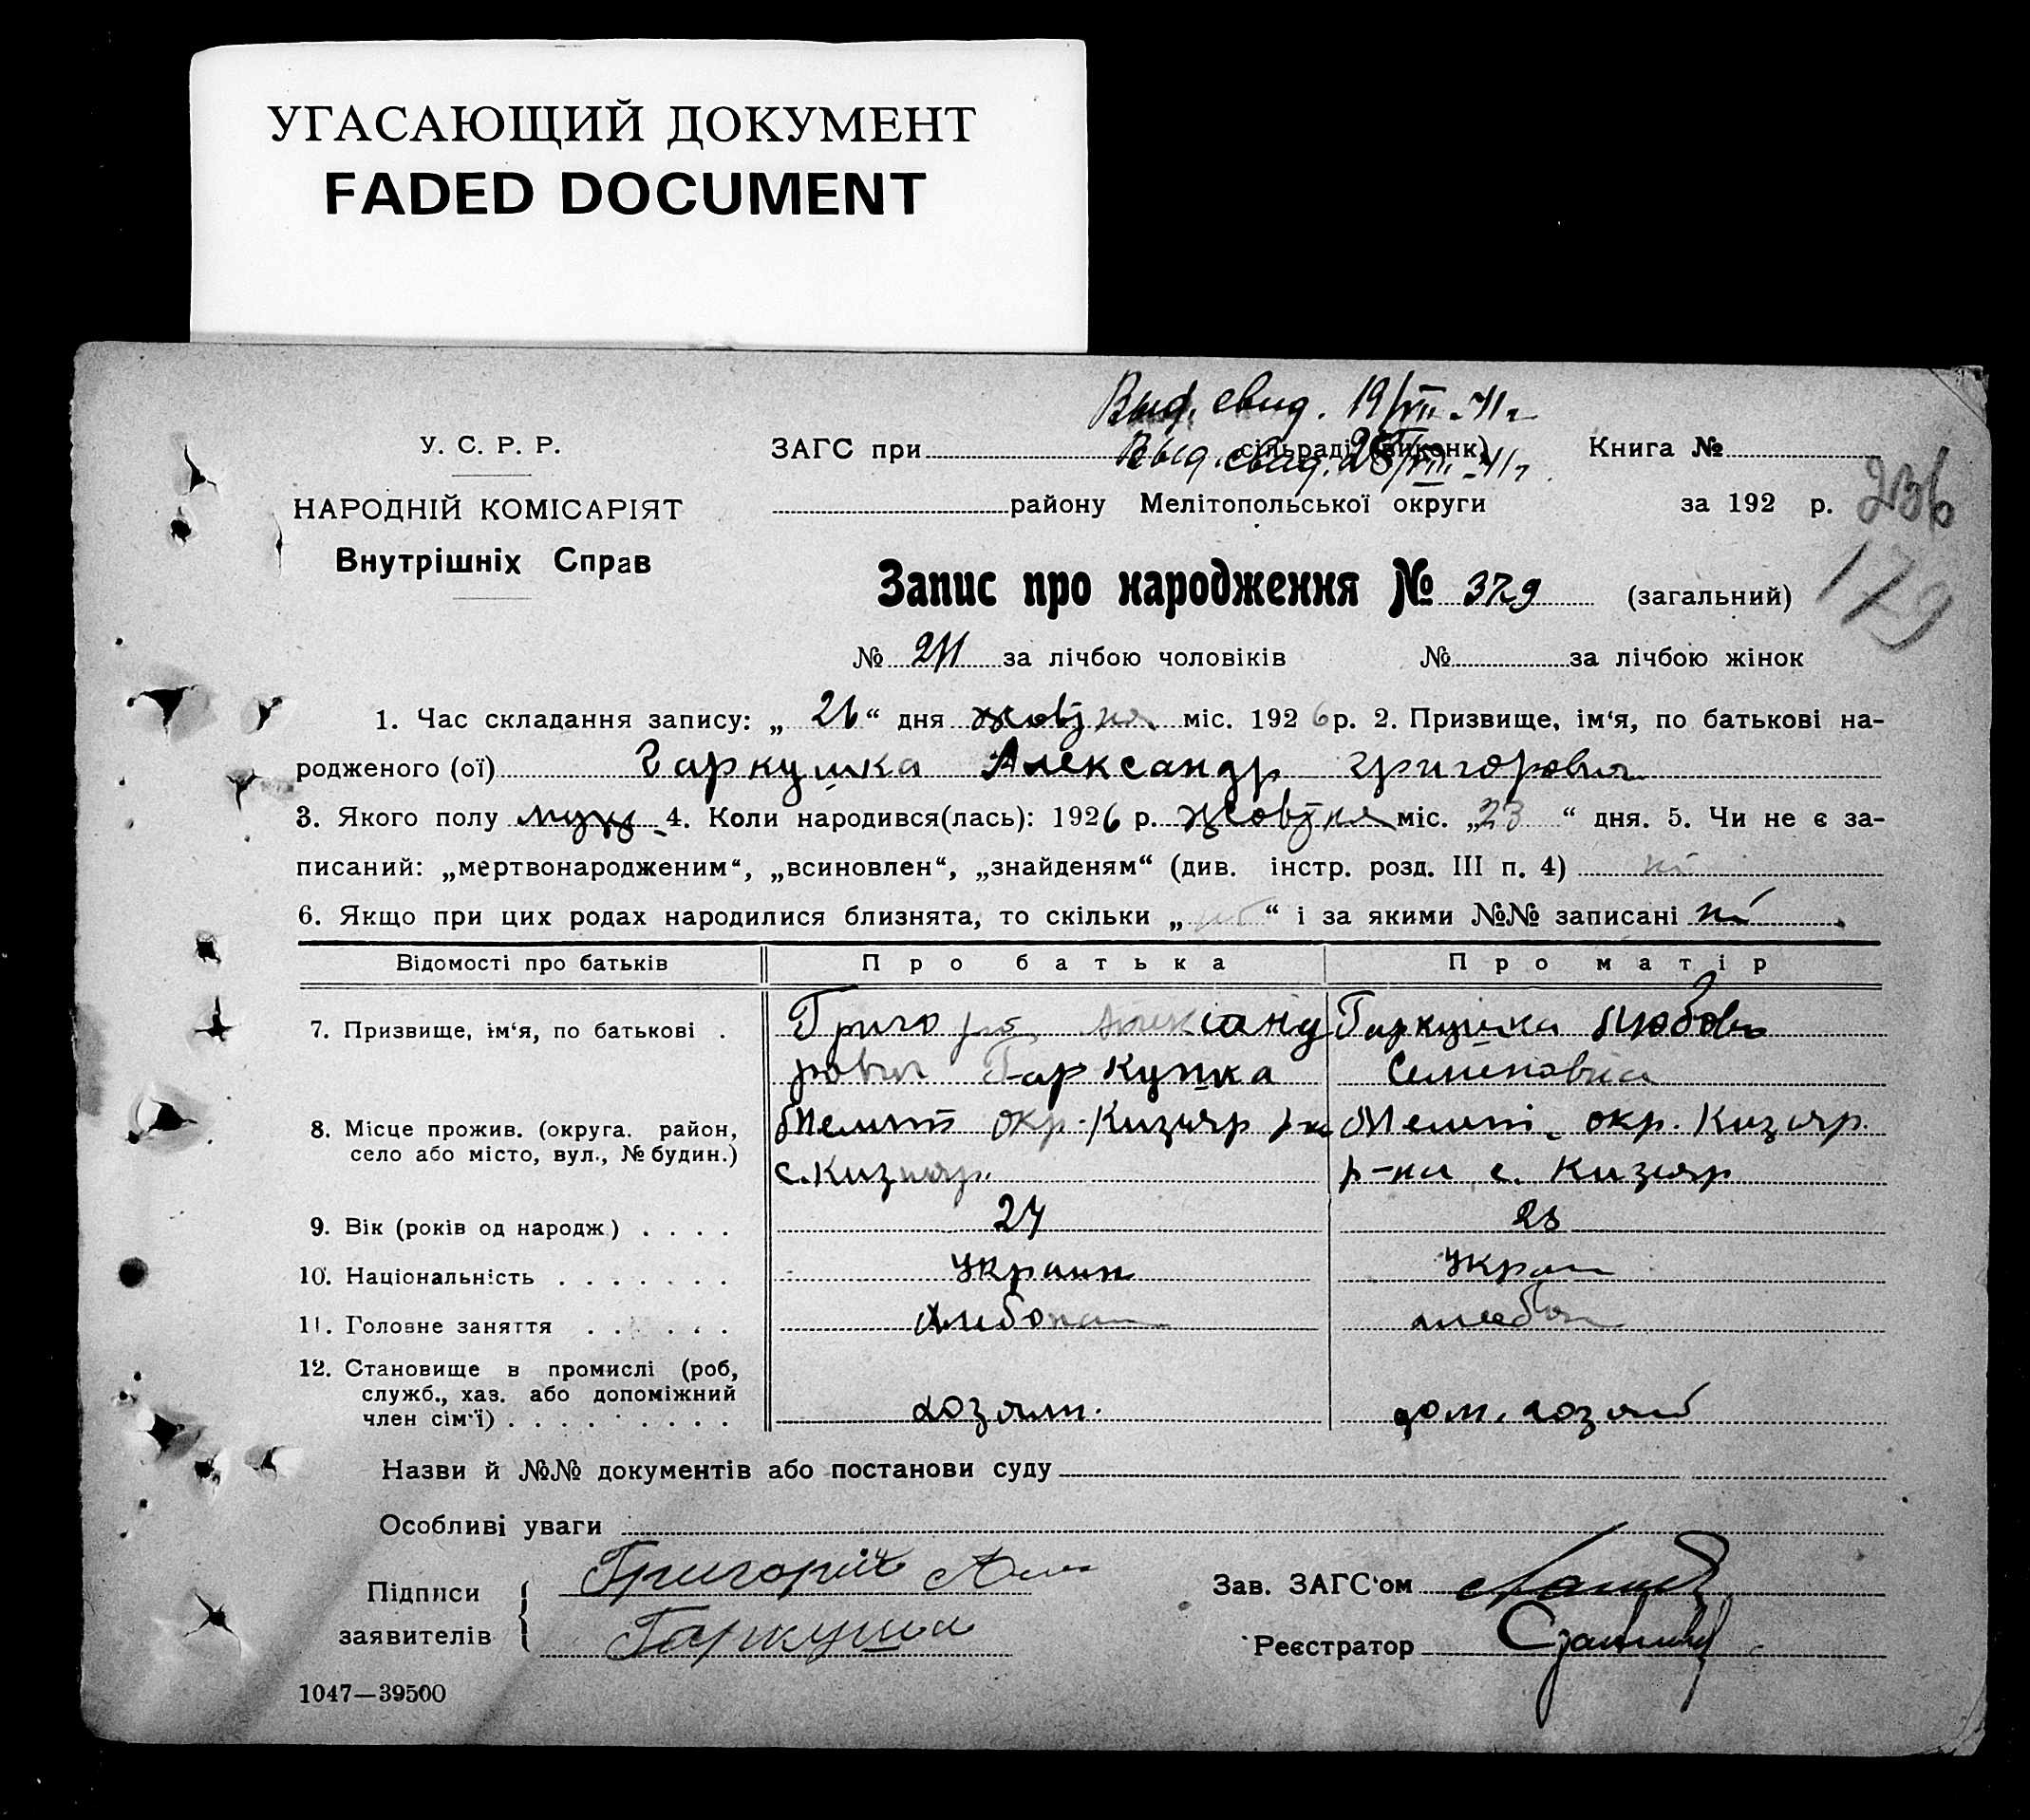 УГАСАЮЩИЙ ДОКУМЕНТ
FADED DOCUMENT
Выд. свид. 19/VII-41г
У. С. Р. Р.
ЗАГС при сільраді (виконк) Книга №
Выд. свид. 25/VII-41г.
НАРОДНІЙ КОМІСАРІЯТ
району Мелітопольської округи за 192 р.
236
Внутрішніх Справ
179
Запис про народження № 379 (загальний)
№ 211 за лічбою чоловіків № за лічбою жінок
1. Час складання запису: „ 26 “ дня жовтня міс. 192 6 р. 2. Призвище, ім‘я, по батькові на-
родженого (ої) Гаркушка Александр Григорович
3. Якого полу муж. 4. Коли народився(лась): 1926 р. жовтня міс. „ 23 “ дня. 5. Чи не є за-
писаний: „мертвонародженим“, „всиновлен“, „знайденям“ (див. інстр. розд. III п. 4) ні
6. Якщо при цих родах народилися близнята, то скільки „ “ і за якими №№ записані ні
Відомості про батьків Про батька Про матір
7. Призвище, ім‘я, по батькові . Григорій Александ Гаркушка Любовь
рович Гаркушка Семеновна
8. Місце прожив. (округа. район, Меліт окр. Кизияр р-н Меліт. окр. Кизияр.
село або місто, вул., № будин.) с. Кизияр. р-на с. Кизияр
9. Вік (років од народж.) . . . . 24 23
10. Національність . . . . . . . Украин Украи
11. Головне заняття . . . . . . Хлебопаш хлебоп
12. Становище в промислі (роб,
служб., хаз. або допоміжний
член сім‘ї) . . . . . . . . . хозяин. дом. хозяй
Назви й №№ документів або постанови суду
Особливі уваги
Підписи Григорій Алек Зав. ЗАГС‘ом
заявителів Гаркуша Реєстратор
1047—39500